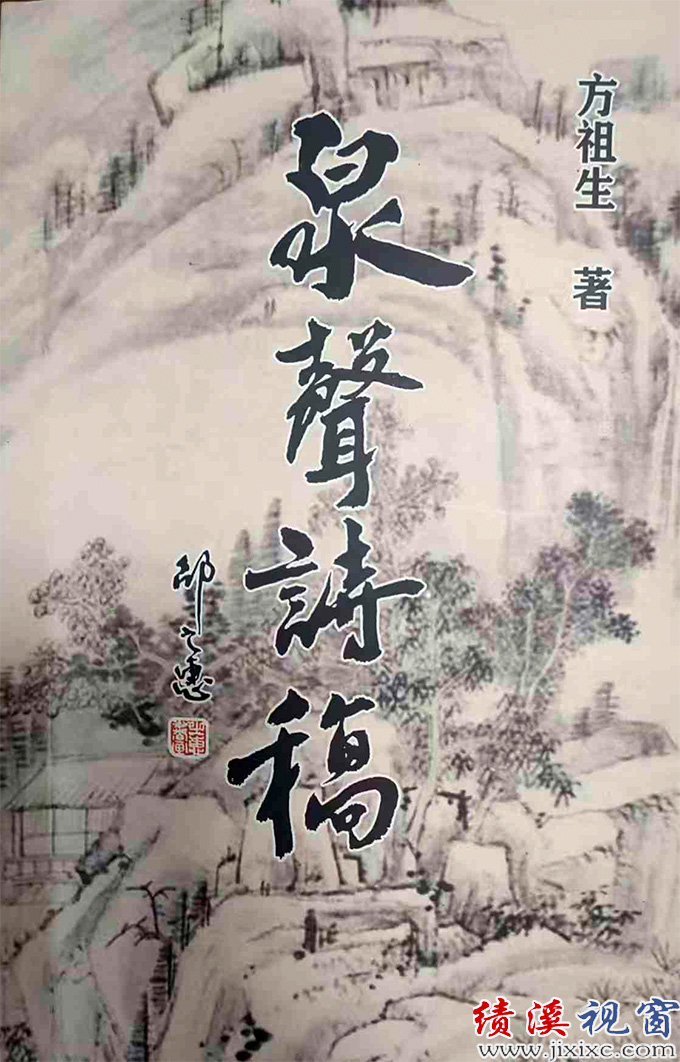 方祖生 著
泉聲詩稿
邱之惠
绩溪视窗
www.jixixc.com